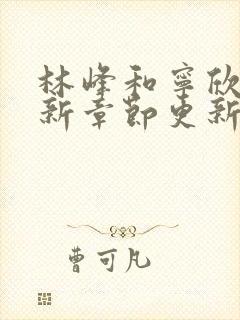 林峰和寧欣
新章節更新
曹可凡